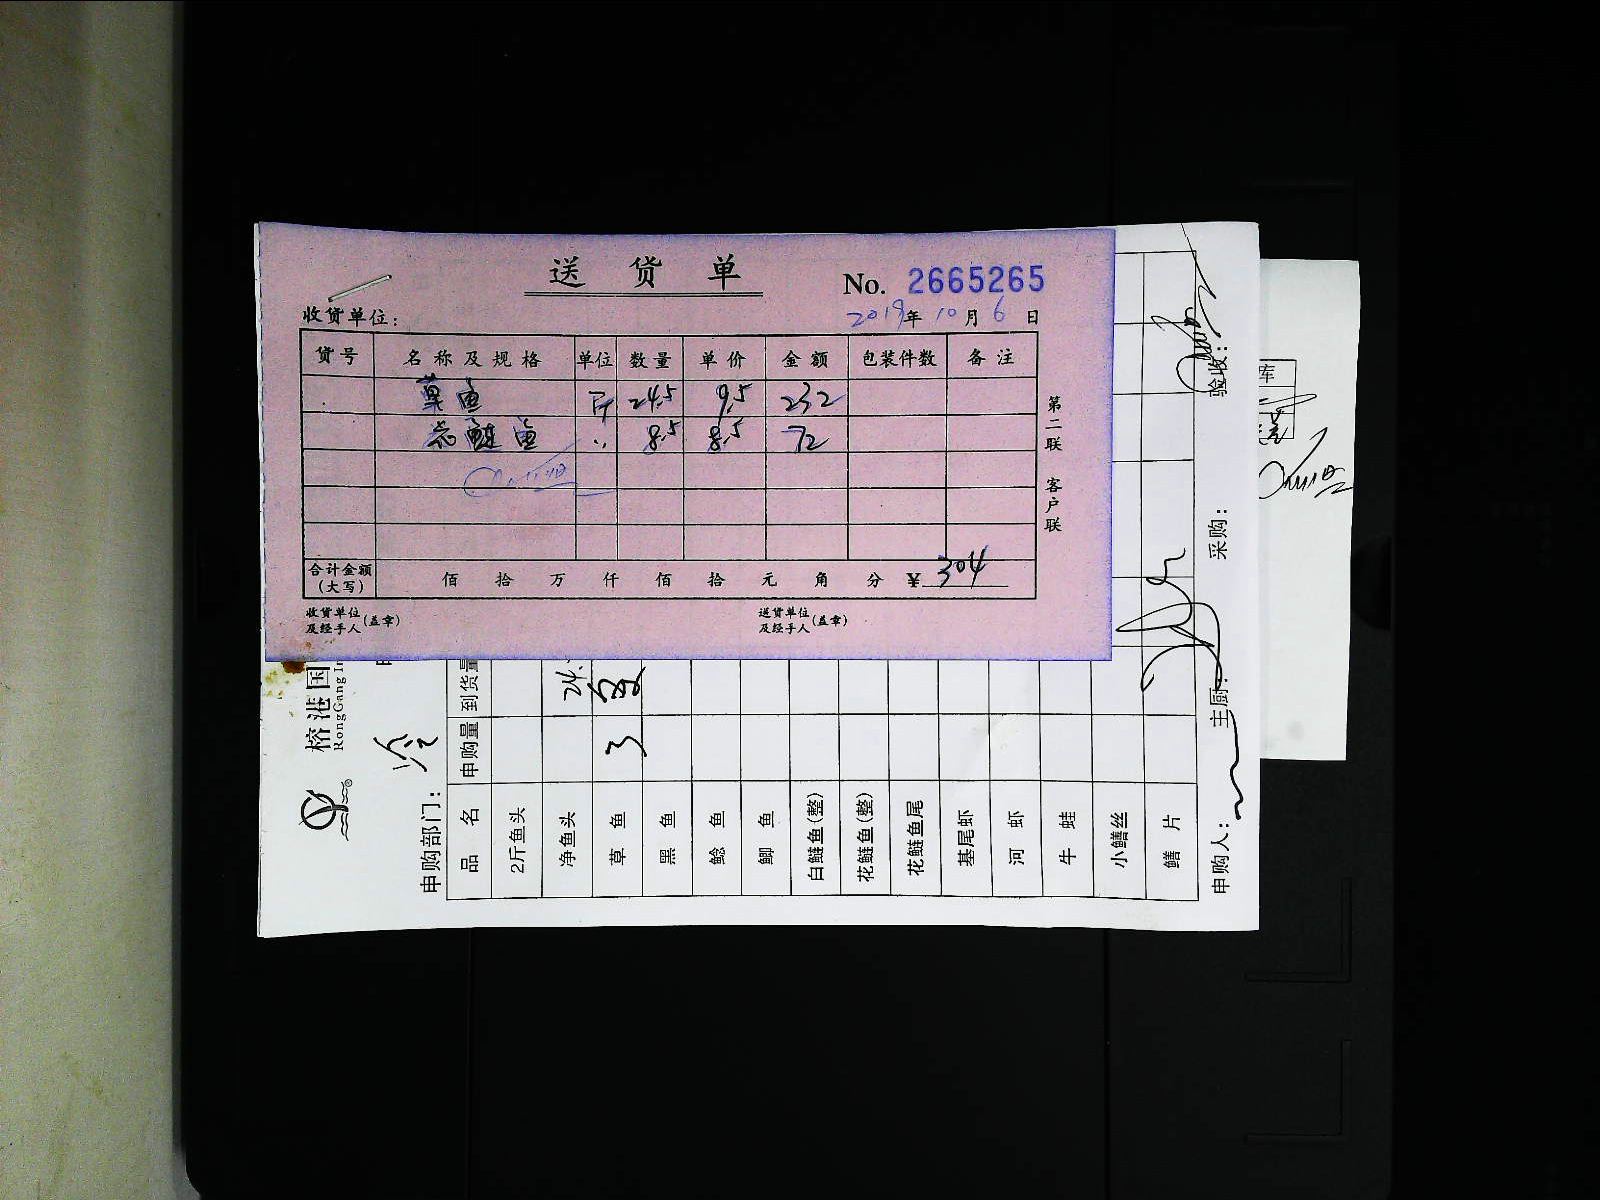 送 货 单
No. 2665265
收货单位:
2019年 10月 6日
货号 名称及规格 单位 数量 单价 金额 包装件数 备注
草鱼 斤 24.5 9.5 232
花鲢鱼 〃 8.5 8.5 72
合计金额(大写) 佰 拾 万 仟 佰 拾 元 角 分 ¥ 304
收货单位及经手人(盖章) 送货单位及经手人(盖章)
第二联 客户联
榕港国
RongGang In
申购部门:
品 名 申购量 到货量
2斤鱼头
净鱼头 24.
草 鱼 3
黑 鱼
鲶 鱼
鲫 鱼
白鲢鱼(整)
花鲢鱼(整)
花鲢鱼尾
基尾虾
河 虾
牛 蛙
小鳝丝
鳝 片
申购人: 主厨: 采购: 验收:
库